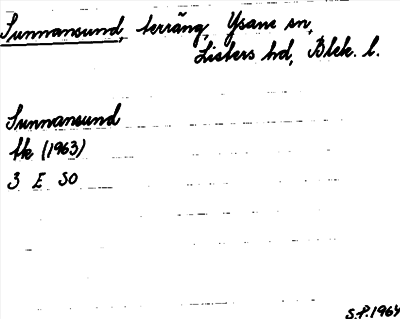 Sunnansund, terräng, Ysane sn,
Listers hd, Blek. l.
Sunnansund
tk (1963)
3 E SO
S.P. 1964